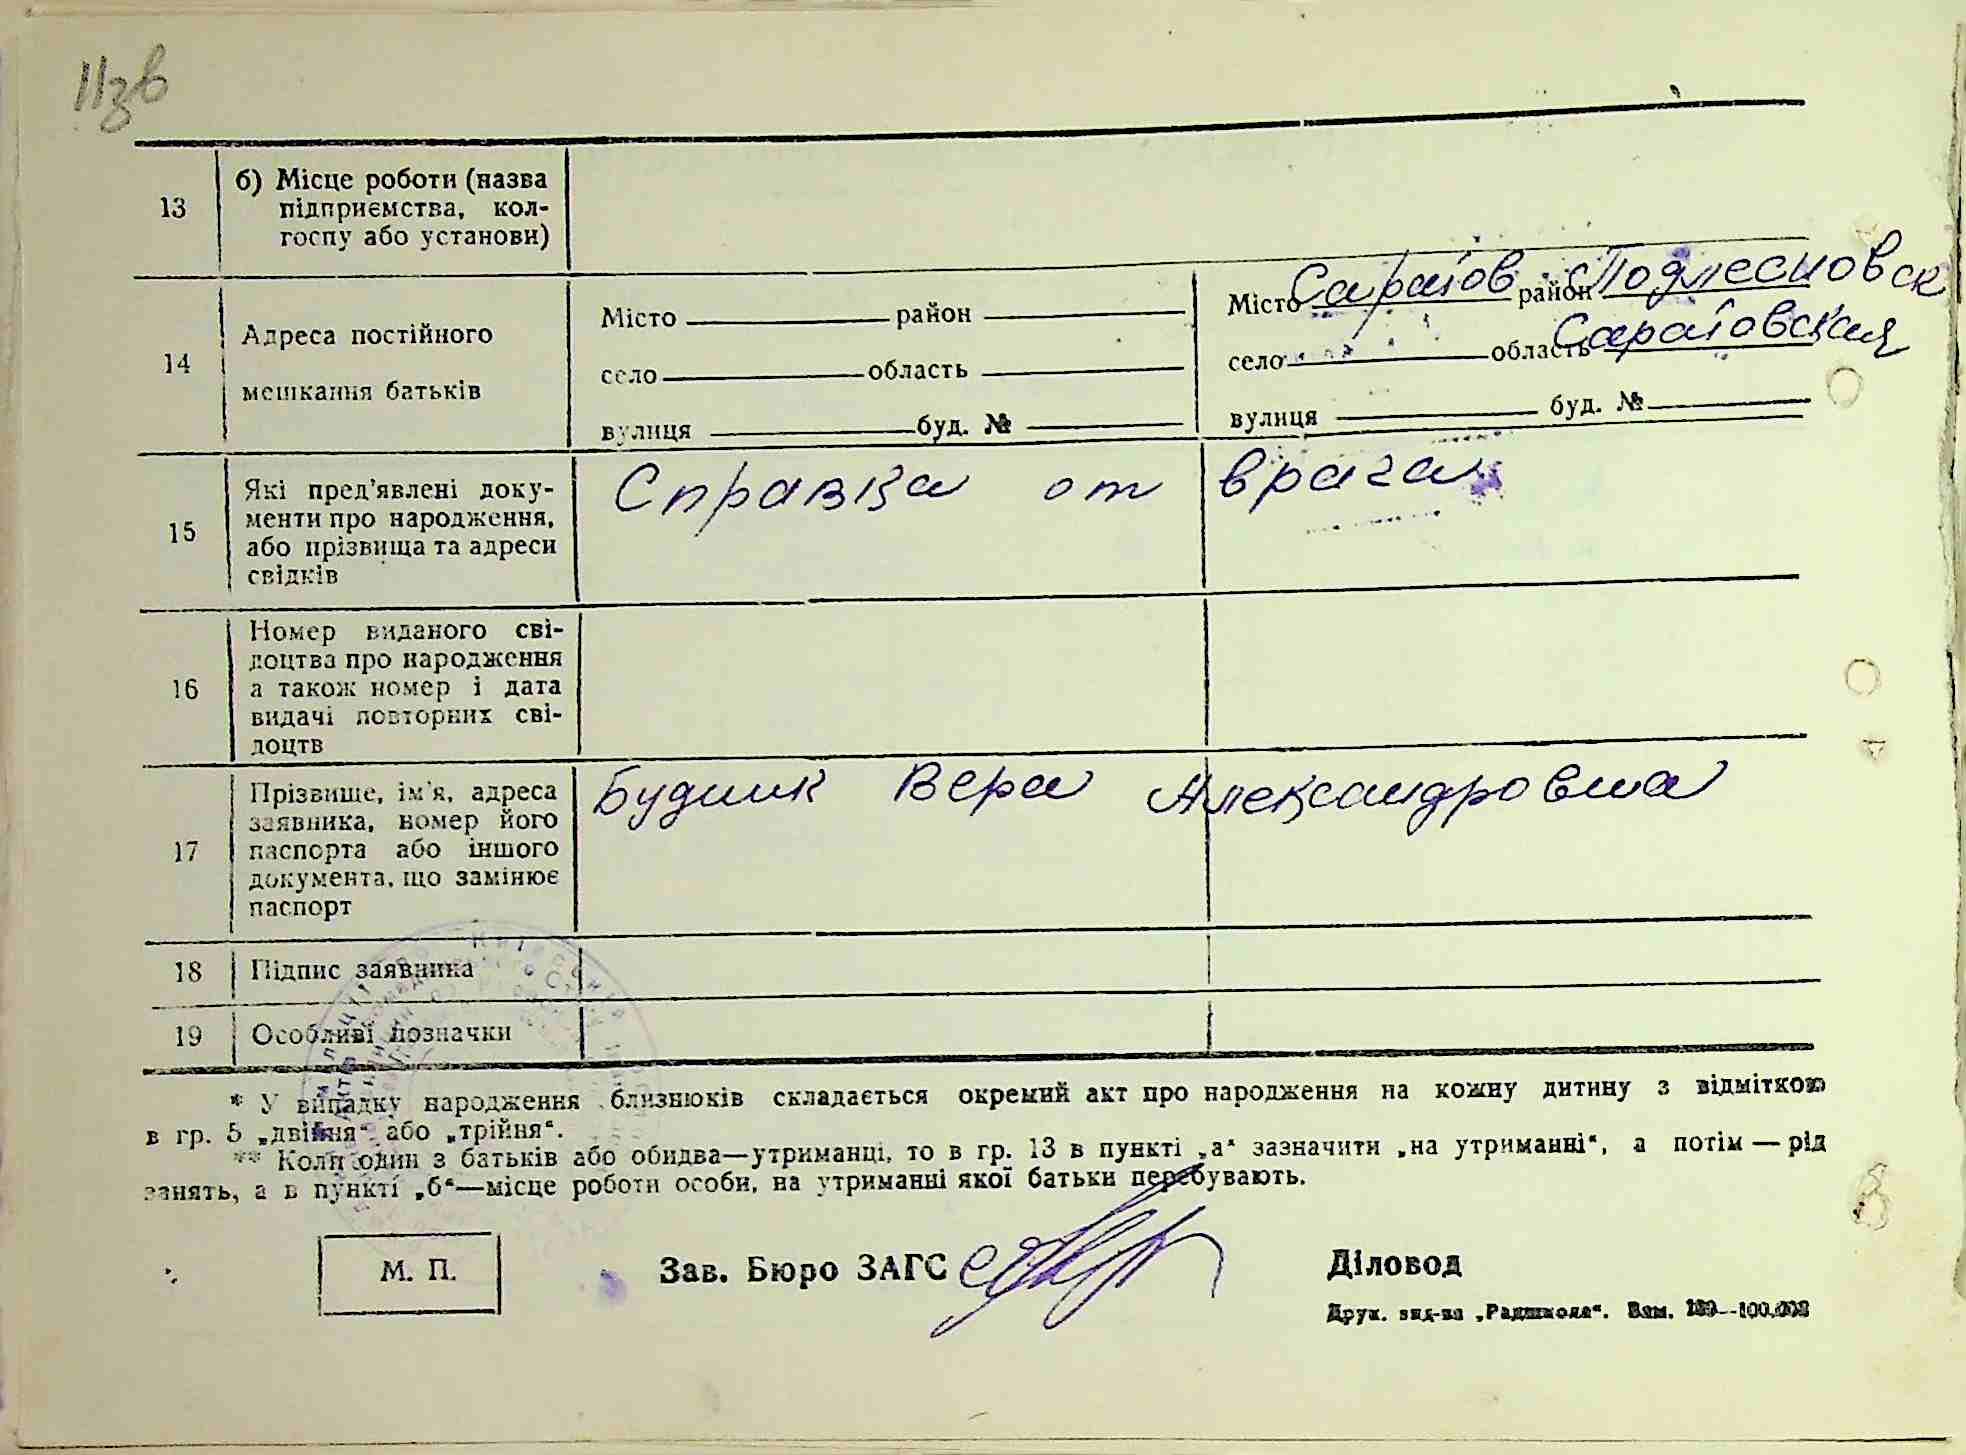 11зв
13 б) Місце роботи (назва
підприємства, кол-
госпу або установи)
14 Адреса постійного
мешкання батьків
Місто район
село область
вулиця буд. №
Місто Саратов район Подлесновск
село область Саратовская
вулиця буд. №
15 Які пред'явлені доку-
менти про народження,
або прізвища та адреси
свідків
Справка от врача
16 Номер виданого сві-
доцтва про народження
а також номер і дата
видачі повторних сві-
доцтв
17 Прізвище, ім'я, адреса
заявника, номер його
паспорта або іншого
документа, що замінює
паспорт
Будник Вера Александровна
18 Підпис заявника
19 Особливі позначки
* У випадку народження близнюків складається окремий акт про народження на кожну дитину з відміткою
в гр. 5 „двійня“ або „трійня“.
** Коли один з батьків або обидва—утриманці, то в гр. 13 в пункті „а“ зазначити „на утриманні“, а потім — рід
занять, а в пункті „б“—місце роботи особи, на утриманні якої батьки перебувають.
М. П. Зав. Бюро ЗАГС Діловод
Друк. вид-ва „Радшкола“. Зам.